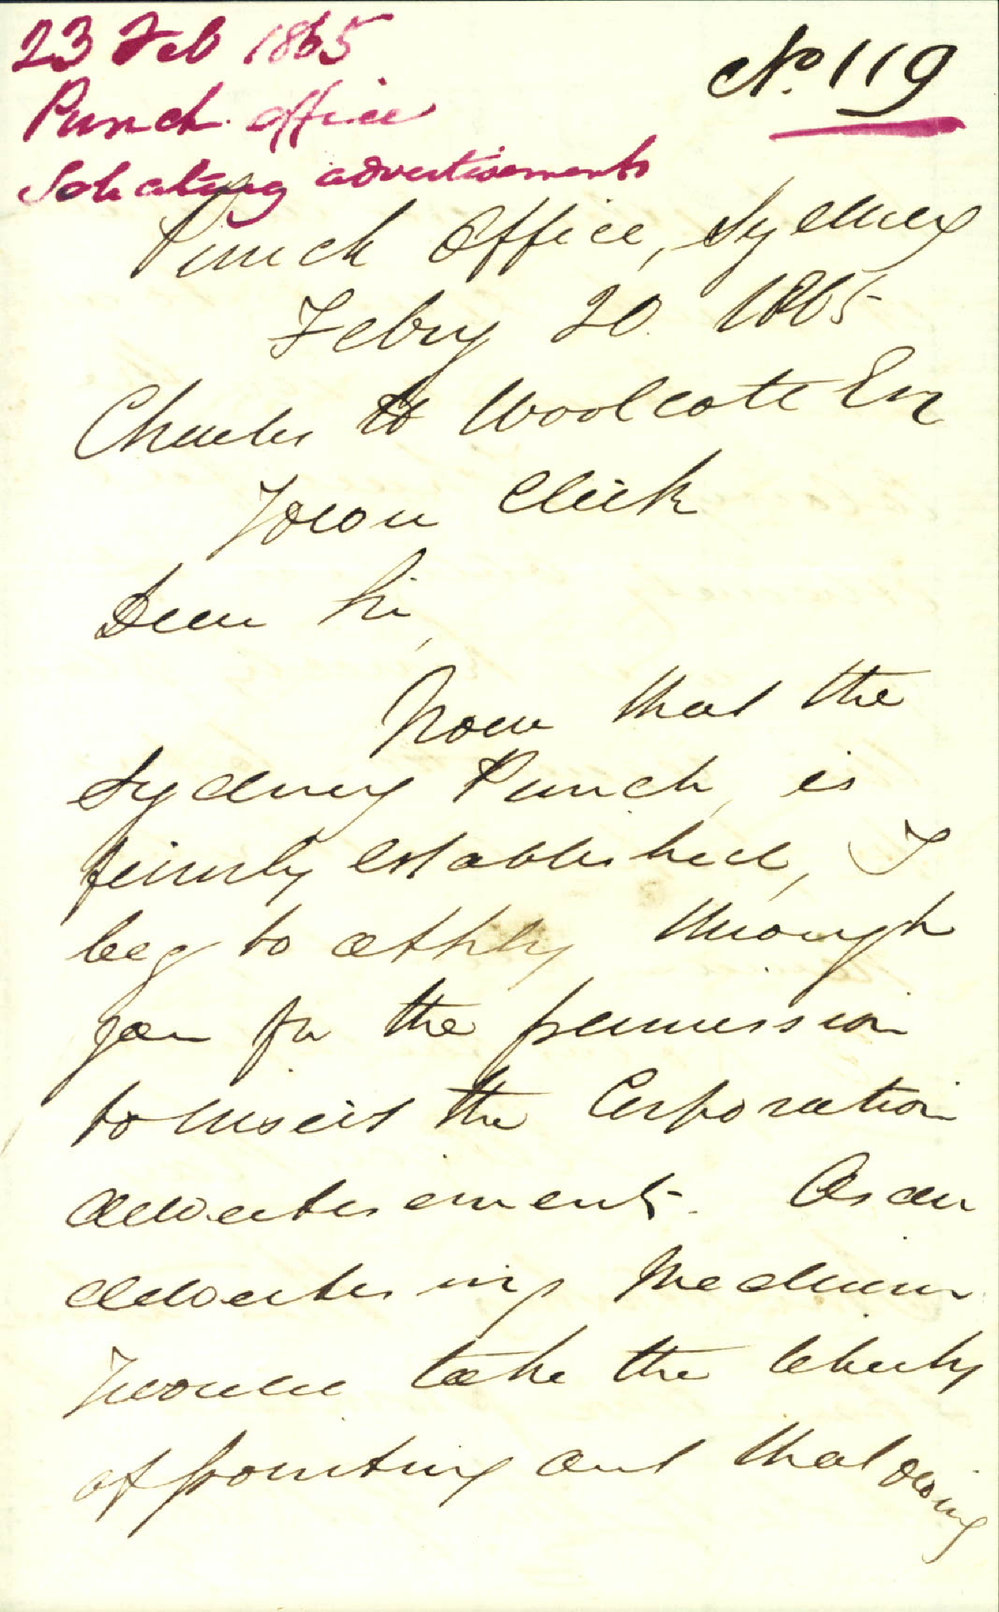 23 Feb 1865
Punch office
Soliciting advertisements
No. 119
Punch Office, Sydney
Febry 20. 1865
Charles H Woolcott Esq
Town Clerk
Dear Sir,
Now that the
Sydney Punch, is
firmly established, I
beg to apply through
you for the permission
to insert the Corporation
advertisements. As an
advertising medium
I would take the liberty
of pointing out that owing